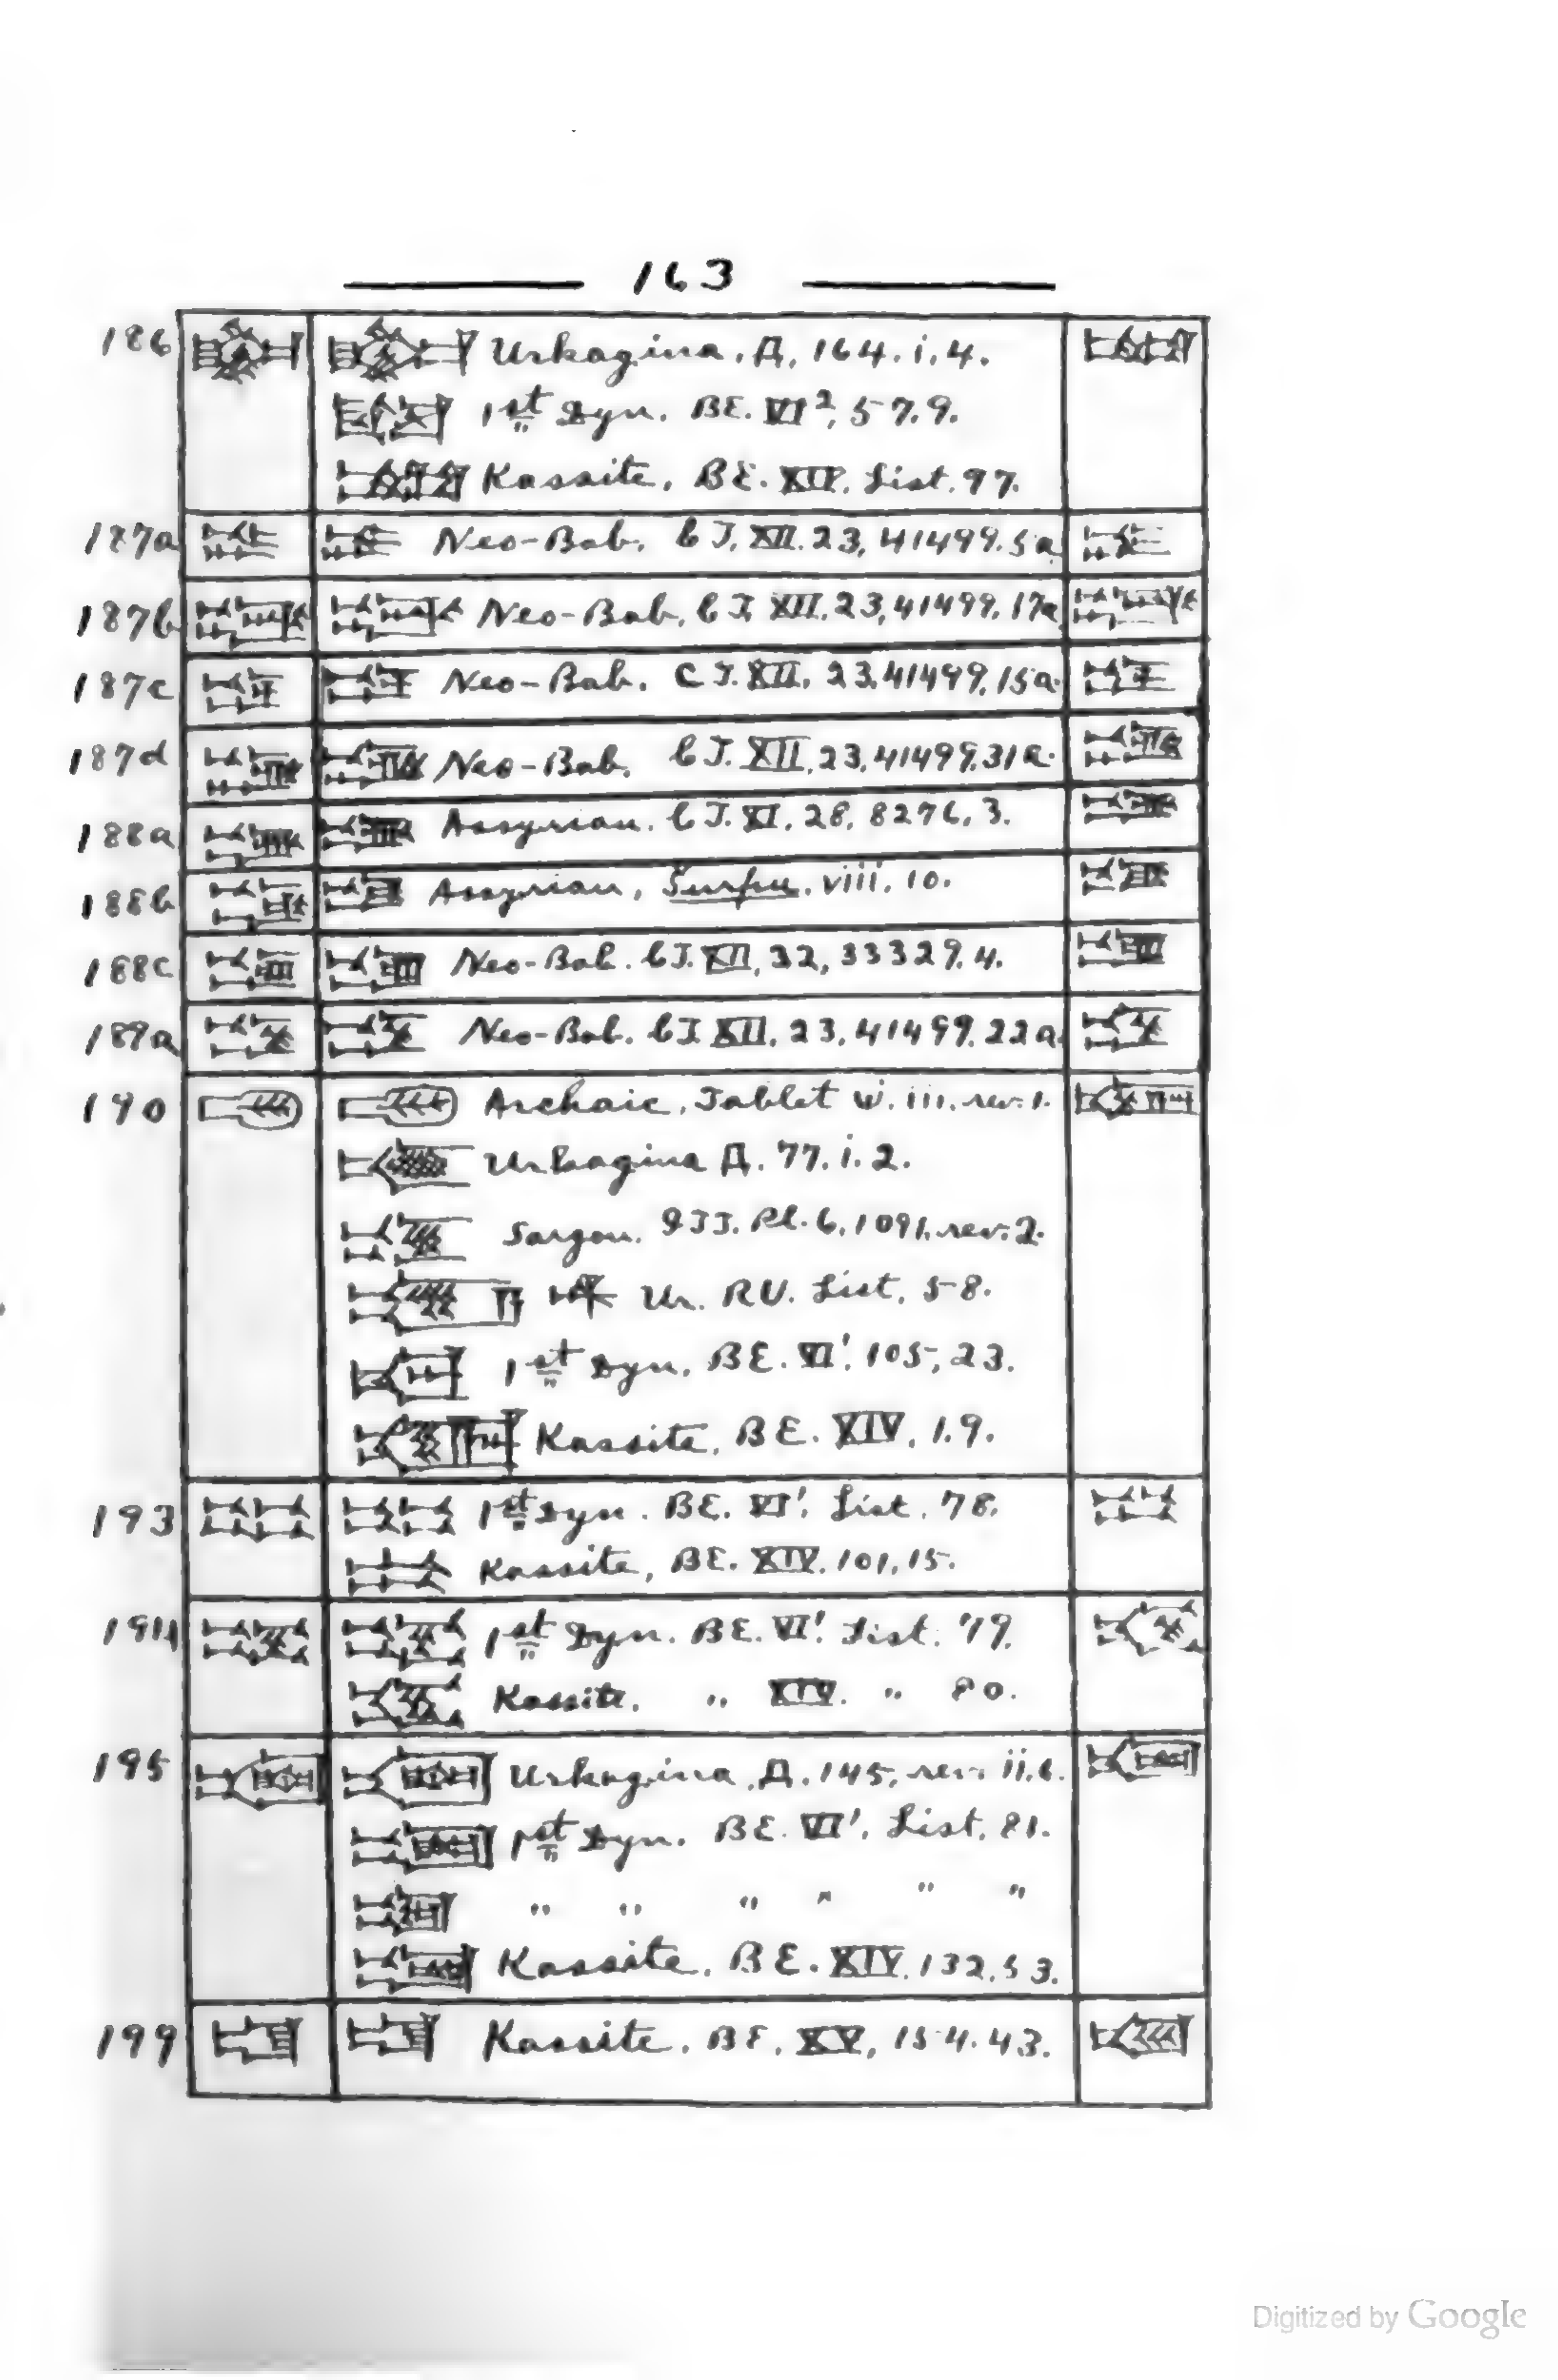 163
186 Urkagina, Д, 164. i, 4.
1st Dyn. BE. VI², 57.9.
Kassite, BE. XIV. List. 97.
187a Neo-Bab. CT. XII. 23, 41499. 5a
187b Neo-Bab. CT. XII. 23, 41499, 17a
187c Neo-Bab. CT. XII. 23, 41499, 15a.
187d Neo-Bab. CT. XII, 23, 41499, 31a.
188a Assyrian. CT. XI. 28, 8276, 3.
188b Assyrian, Šurpu. viii. 10.
188c Neo-Bab. CT. XII, 32, 33329. 4.
189a Neo-Bab. CT. XII. 23, 41499. 22a.
190 Archaic, Tablet iii. rev. 1.
Urkagina Д. 77. i. 2.
Sargon. Pl. 6, 1091. rev. 2.
Ur. RU. List, 58.
1st Dyn. BE. VI¹. 105, 23.
Kassite, BE. XIV, 1.9.
193 1st Dyn. BE. VI¹. List, 78.
Kassite, BE. XIV. 101, 15.
194 1st Dyn. BE. VI¹. List. 79.
Kassite. " XIV. " 80.
195 Urkagina, Д. 145, rev. ii. 6.
1st Dyn. BE. VI¹. List, 81.
" " " " " "
Kassite, BE. XIV. 132, 53.
199 Kassite. BE. XV, 154. 43.
Digitized by Google